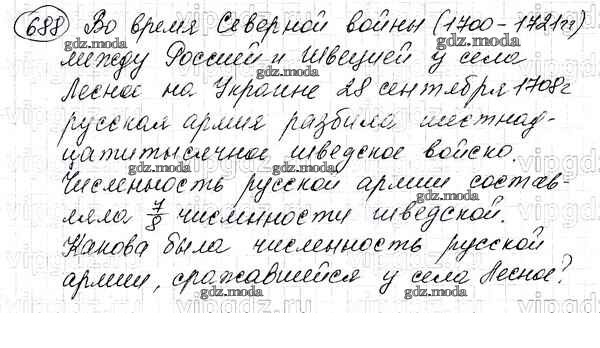 688 Во время Северной войны (1700-1721гг)
между Россией и Швецией у села
Лесное на Украине 28 сентября 1708г
русская армия разбила шестнад-
цатитысячное шведское войско.
Численность русской армии состав-
ляла 7/8 численности шведской.
Какова была численность русской
армии, сражавшейся у села Лесное?
gdz.moda
vipgdz